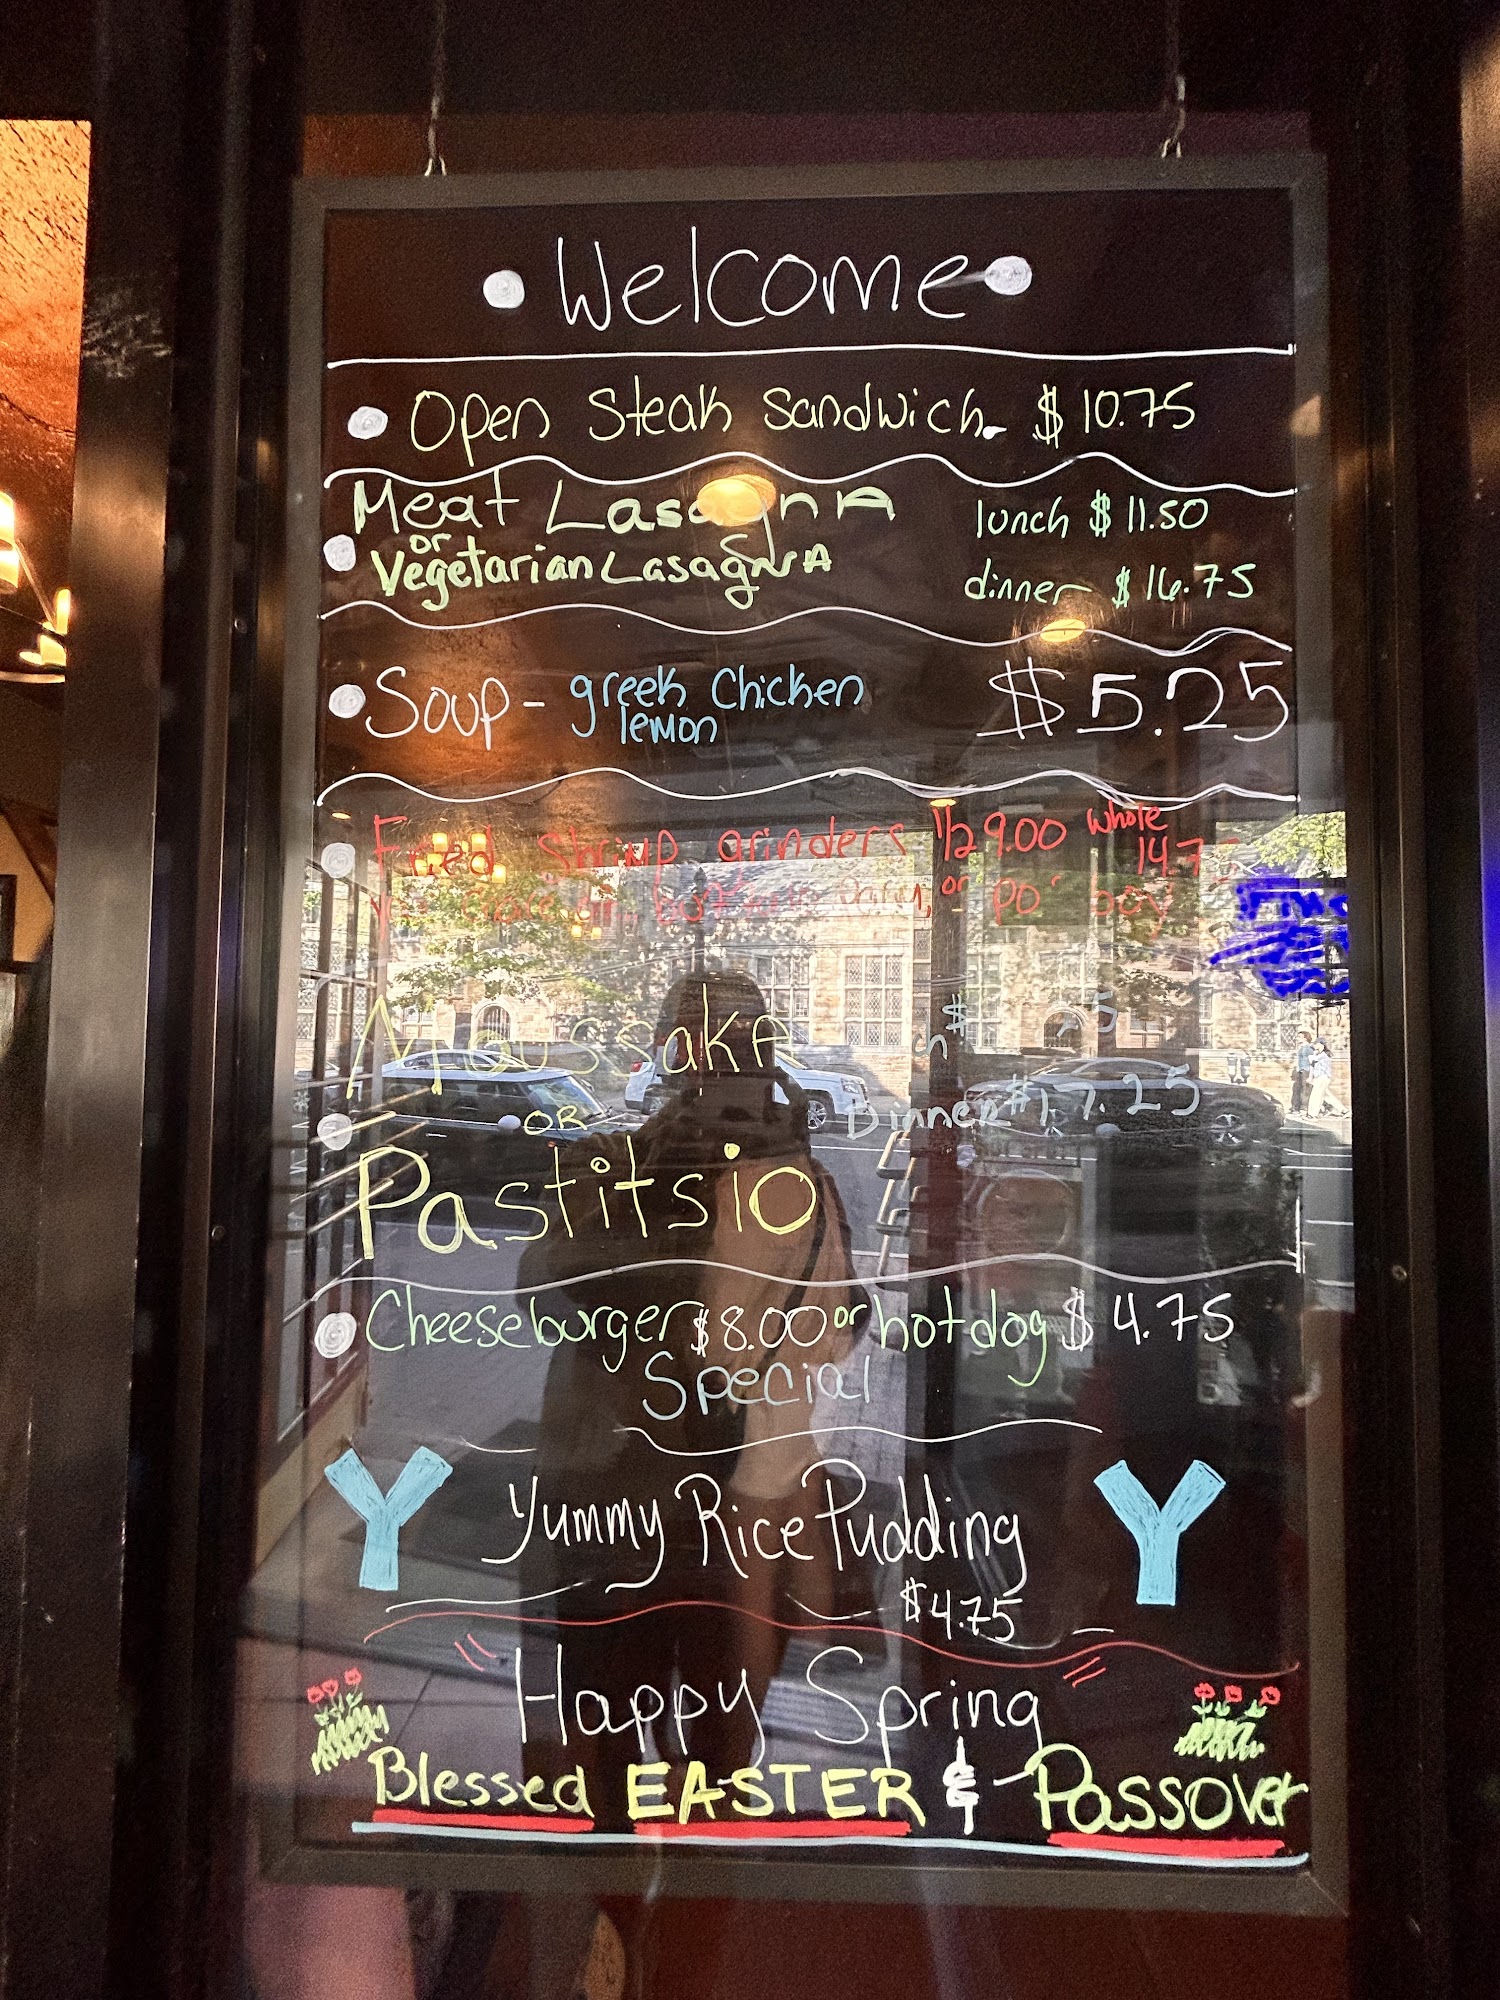 Welcome
Open Steak Sandwich. $10.75
Meat LasagnA lunch $11.50
or
Vegetarian LasagnA dinner $16.75
Soup - greek Chicken $5.25
lemon
Fried Shrimp grinders 1/2 9.00 whole
parm, or po' boy
MoussakA
OR Dinner $17.25
Pastitsio
Cheeseburger $8.00 or hotdog $4.75
Special
Y Yummy Rice Pudding Y
$4.75
Happy Spring
Blessed EASTER & Passover